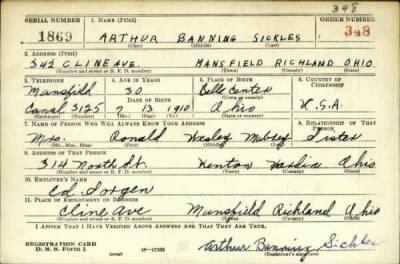 348
SERIAL NUMBER 1. NAME (Print) ORDER NUMBER
1869 ARTHUR BANNING SICKLES 348
(First) (Middle) (Last)
2. ADDRESS (Print)
342 CLINE AVE. MANSFIELD RICHLAND OHIO
(Number and street or R. F. D. number) (Town) (County) (State)
3. TELEPHONE 4. AGE IN YEARS 5. PLACE OF BIRTH 6. COUNTRY OF CITIZENSHIP
Mansfield 30 Belle Center
(Exchange) DATE OF BIRTH (Town or county)
Canal 3125 7 13 1910 Ohio U.S.A.
(Number) (Mo.) (Day) (Yr.) (State or country)
7. NAME OF PERSON WHO WILL ALWAYS KNOW YOUR ADDRESS 8. RELATIONSHIP OF THAT PERSON
Mrs. Ronald Wesley Sister
(Mr., Mrs., Miss) (First) (Middle) (Last)
9. ADDRESS OF THAT PERSON
314 North St. Kenton Hardin Ohio
(Number and street or R. F. D. number) (Town) (County) (State)
10. EMPLOYER'S NAME
Ed
11. PLACE OF EMPLOYMENT OR BUSINESS
Cline Ave Mansfield Richland Ohio
(Number and street or R. F. D. number) (Town) (County) (State)
I AFFIRM THAT I HAVE VERIFIED ABOVE ANSWERS AND THAT THEY ARE TRUE.
REGISTRATION CARD
D. S. S. Form 1 (over) 16—17105 Arthur Banning Sickles
(Registrant's signature)